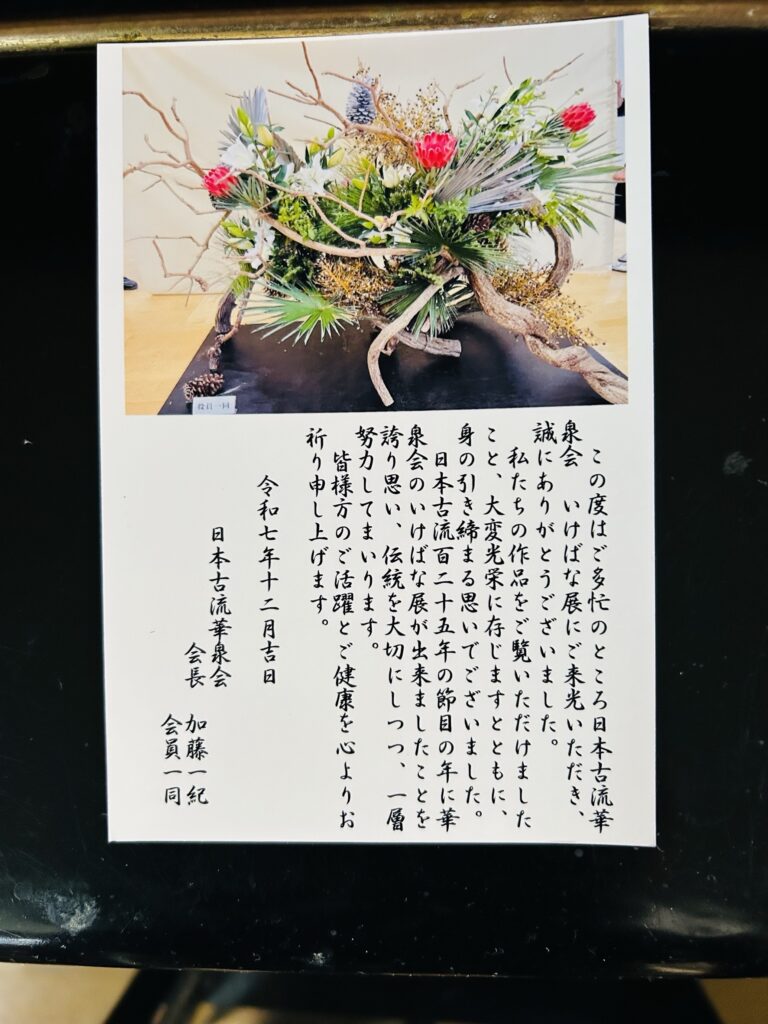 役員一同
この度はご多忙のところ日本古流華
泉会　いけばな展にご来光いただき、
誠にありがとうございました。
私たちの作品をご覧いただけました
こと、大変光栄に存じますとともに、
身の引き締まる思いでございました。
日本古流百二十五年の節目の年に華
泉会のいけばな展が出来ましたことを
誇り思い、伝統を大切にしつつ、一層
努力してまいります。
皆様方のご活躍とご健康を心よりお
祈り申し上げます。
令和七年十二月吉日
日本古流華泉会
会長　加藤一紀
会員一同